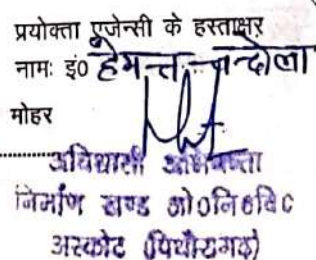 प्रयोक्ता एजेन्सी के हस्ताक्षर
नामः इं0 हेमन्त चन्दोला
मोहर
अधिशासी अभियन्ता
निर्माण खण्ड लो०नि०वि०
अस्कोट (पिथौरागढ़)